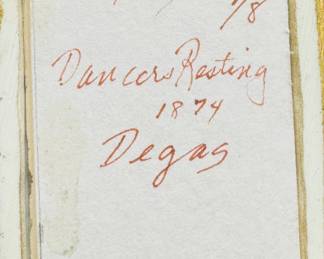 1/8
Dancers Resting
1874
Degas